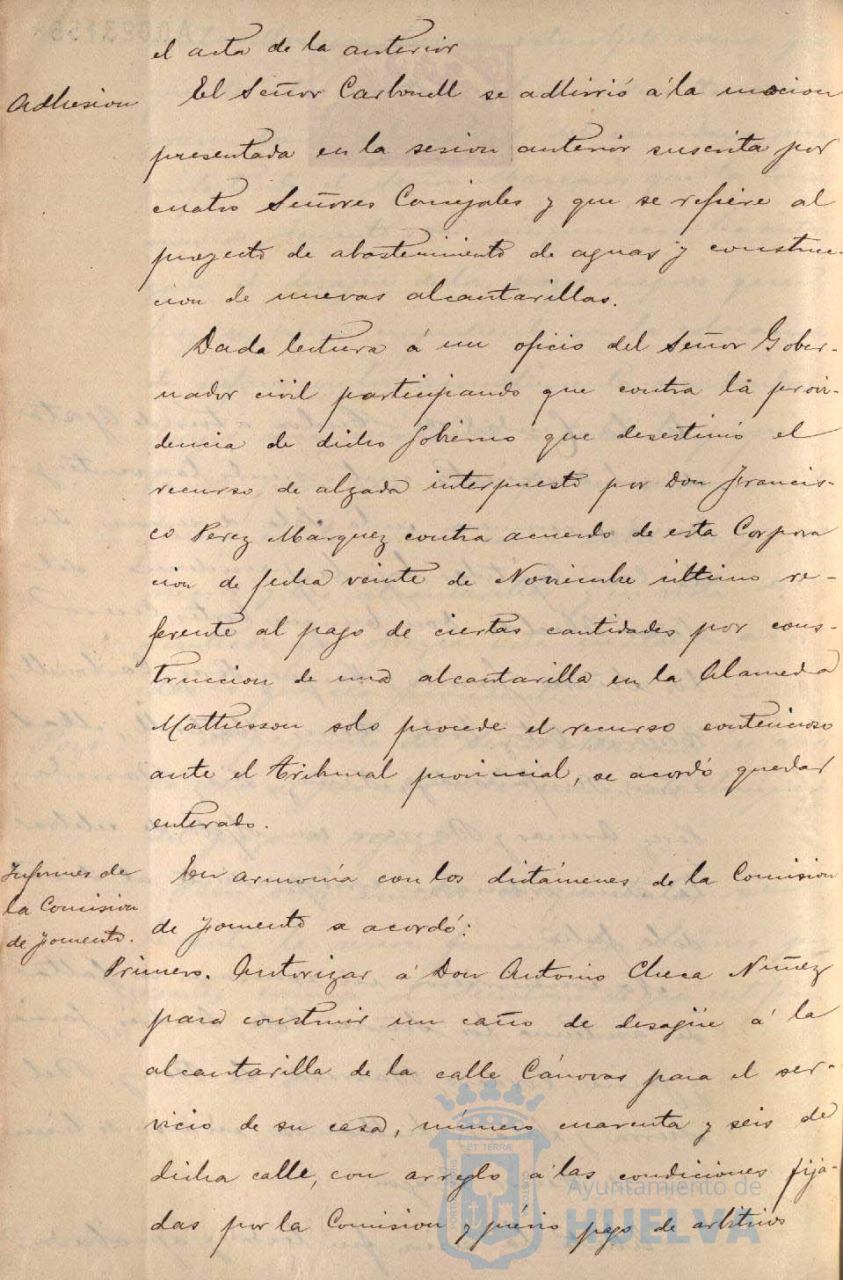 el acta de la anterior
Adhesion
El Señor Carbonell se adhirió á la mocion
presentada en la sesion anterior suscrita por
cuatro Señores Concejales y que se refiere al
proyecto de abastecimiento de aguas y construc-
cion de nuevas alcantarillas.
Dada lectura á un oficio del Señor Gober-
nador civil participando que contra la provi-
dencia de dicho Gobierno que desestimó el
recurso de alzada interpuesto por Don Francis-
co Perez Márquez contra acuerdo de esta Corpora
cion de fecha veinte de Noviembre último re-
ferente al pago de ciertas cantidades por cons-
truccion de una alcantarilla en la Alameda
Mathesson solo procede el recurso contencioso
ante el Tribunal provincial, se acordó quedar
enterado.
Informes de
la Comision
de fomento.
En armonía con los dictámenes de la Comision
de fomento se acordó:
Primero. Autorizar á Don Antonio Checa Nuñez
para construir un caño de desagüe á la
alcantarilla de la calle Cánovas para el ser-
vicio de su casa, número cuarenta y seis de
dicha calle, con arreglo á las condiciones fija-
das por la Comision y prévio pago de arbitrios
Ayuntamiento de
HUELVA